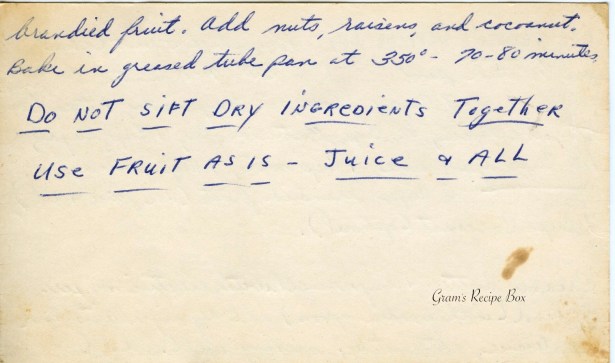 brandied fruit. Add nuts, raisens, and cocoanut.
Bake in greased tube pan at 350° - 70-80 minutes.
DO NOT SIFT DRY INGREDIENTS Together
Use FRUIT AS IS - Juice & ALL
Gram's Recipe Box